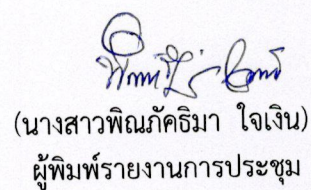 (นางสาวพิณภัคธิมา ใจเงิน)
ผู้พิมพ์รายงานการประชุม